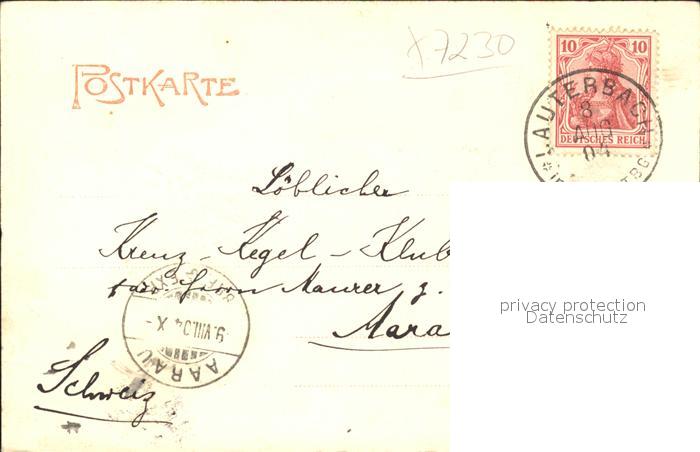 POSTKARTE
x7230
10 10
DEUTSCHES REICH
LAUTERBACH
8
AUG
04
Löblicher
Kreuz-Kegel-Klub
Herrn Maurer z.
Aara
AARAU
9.VIII.04 X-
Schweiz
privacy protection
Datenschutz